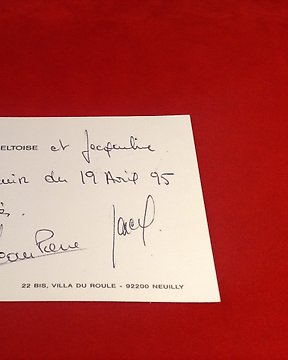 ELTOISE et Jacqueline
du 19 Avril 95
Jean Pierre
22 BIS, VILLA DU ROULE - 92200 NEUILLY